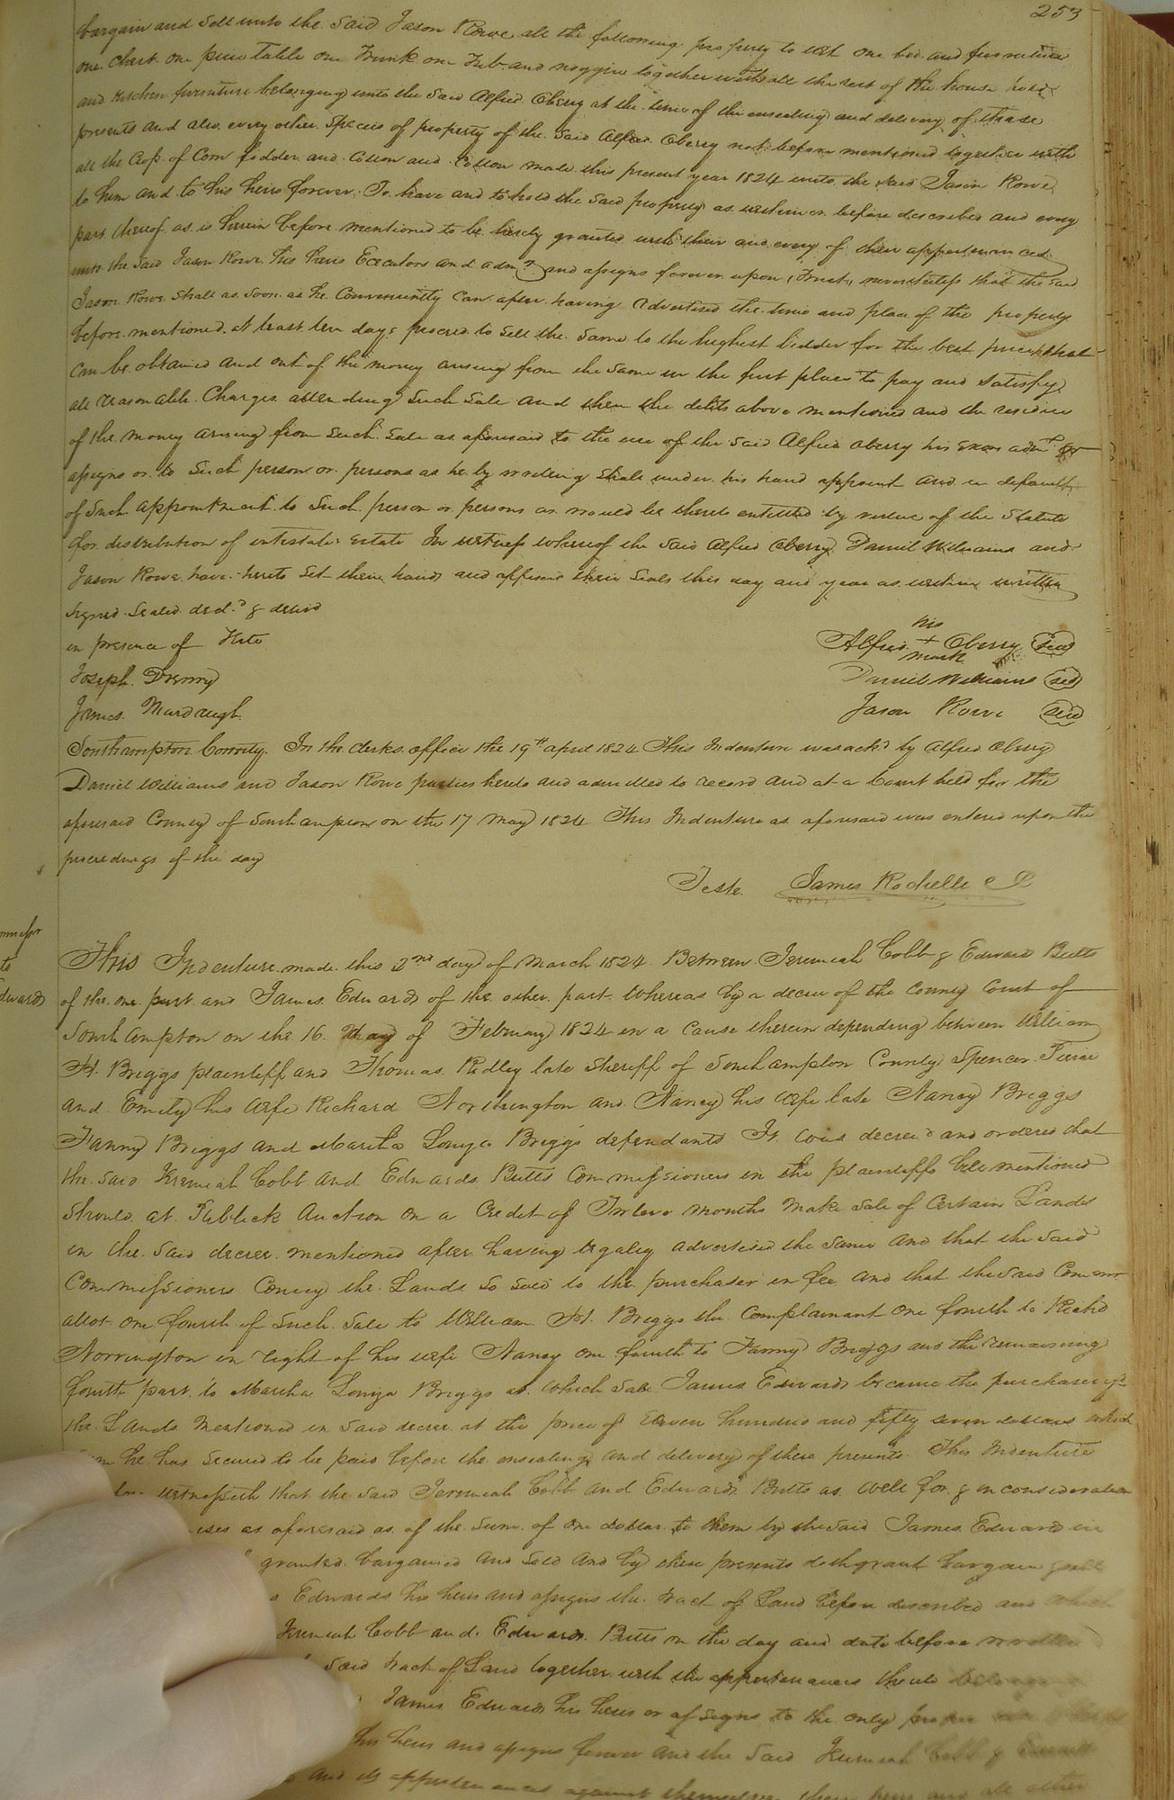 253
bargain and sell unto the said Jason Rowe all the following property to wit one bed and furniture
one Chest one pine Table one Trunk one Tub and noggin together with all the rest of the house hold
and kitchen furniture belonging unto the said Alfred Oberry at the time of the ensealing and delivery of these
presents and also every other Species of property of the said Alfred Oberry not before mentioned together with
all the Crop of Corn fodder and Cotton and Cotton made this present year 1824 unto the said Jason Rowe
to him and to his heirs forever. To have and to hold the said property as written or before described and every
part thereof as is herein before mentioned to be hereby granted with their and every of their appurtenances
unto the said Jason Rowe his heirs Executors and admrs and assigns forever upon Trust, nevertheless that the said
Jason Rowe shall as soon as he Conveniently can after having advertised the time and place of the property
before mentioned at least ten days proceed to sell the same to the highest bidder for the best price that
can be obtained and out of the money arising from the same in the first place to pay and satisfy
all reasonable Charges attending such sale and then the debts above mentioned and the residue
of the money arising from such sale as aforesaid to the use of the said Alfred Oberry his exors admrs or
assigns or to such person or persons as he by writing shall under his hand appoint and in default
of such appointment to such person or persons as would be thereto entitled by virtue of the Statute
for distribution of intestate's estate In witness whereof the said Alfred Oberry Daniel Williams and
Jason Rowe have hereto set their hands and affixed their Seals this day and year as within written
Signed Sealed and
in presence of
Joseph
James Murdaugh
his
Alfred + Oberry seal
mark
Daniel Williams seal
Jason Rowe seal
Southampton County. In the Clerks office the 19th april 1824 This Indenture was ackd by Alfred Oberry
Daniel Williams and Jason Rowe parties hereto and admitted to record and at a Court held for the
aforesaid County of Southampton on the 17 May 1824 This Indenture as aforesaid was entered upon the
proceedings of the day
Teste. James Rochelle C
to
Edwards
This Indenture made this 2nd day of March 1824 Between Jeremiah Cobb & Edward Butts
of the one part and James Edwards of the other part Whereas by a decree of the County Court of
Southampton on the 16. day of February 1824 in a cause therein depending between William
H. Briggs plaintiff and Thomas Ridley late Sheriff of Southampton County Spencer
and Emily his wife Richard Northington and Nancy his wife late Nancy Briggs
Fanny Briggs and Martha Louiza Briggs defendants It was decreed and ordered that
the said Jeremiah Cobb and Edwards Butts Commissioners in the plaintiffs bill mentioned
should at Publick Auction on a Credit of Twelve months make sale of Certain Lands
in the said decree mentioned after having legally advertised the same and that the said
Commissioners Convey the Lands so sold to the purchaser in fee and that the said Commrs
allot one fourth of such sale to William H. Briggs the Complainant one fourth to Richd
Norrington in right of his wife Nancy one fourth to Fanny Briggs and the remaining
fourth part to Martha Louiza Briggs at which sale James Edwards became the purchaser of
the Lands mentioned in said decree at the price of Eleven hundred and fifty seven dollars which
he has secured to be paid before the ensealing and delivery of these presents. This Indenture
witnesseth that the said Jeremiah Cobb and Edwards Butts as well for & in consideration
as aforesaid as of the sum of one dollar to them by the said James Edwards in
granted bargained and sold and by these presents doth grant bargain
Edwards his heirs and assigns the tract of Land before described and which
Jeremiah Cobb and Edwards Butts on the day and date before written
said tract of Land together with the appurtenances thereto belonging
James Edwards his heirs or assigns to the only proper
his heirs and assigns forever and the said Jeremiah Cobb &
and its appurtenances against themselves their heirs and all other